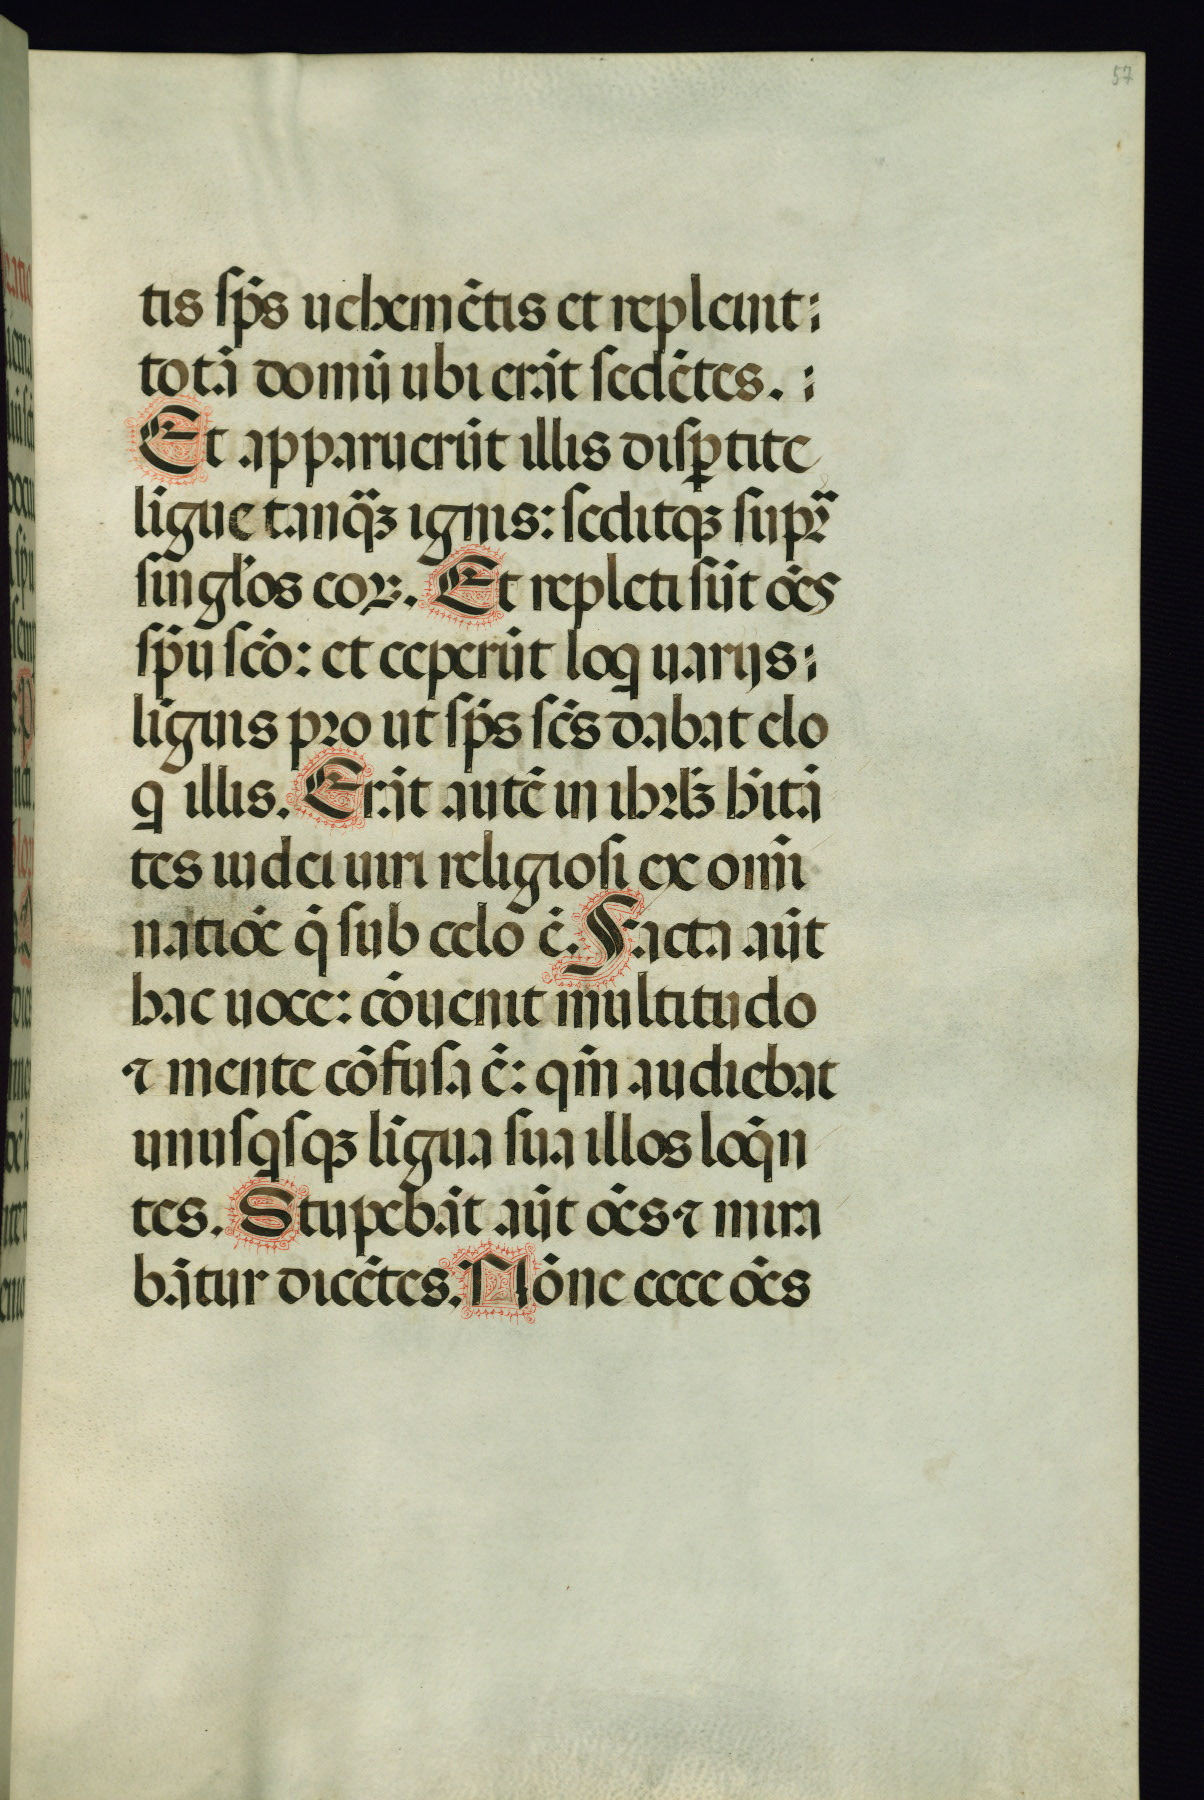 57
tis sp̄s uehemētis et repleuit:
totā domū ubi erāt sedētes. :
Et apparuerūt illis disꝑtite
līgue tanq̄ꝫ ignis: seditqꝫ supr̄
singl̄os eoꝝ. Et repleti sūt oēs
sp̄u sc̄o: et ceperūt loq̄ uarijs:
līguis pro ut sp̄s sc̄s dabat elo
q̄ illis. Erāt autē in ihrl̄ꝫ hītā
tes iudei uiri religiosi ex om̄i
natiōe q̄ sub celo ē. Facta aūt
hac uoce: cōuenit multitudo
⁊ mente cōfusa ē: qm̄ audiebat
unusqsqꝫ līgua sua illos loq̄n
tes. Stupebāt aūt oēs ⁊ mira
bātur dicētes. Nōne ecce oēs